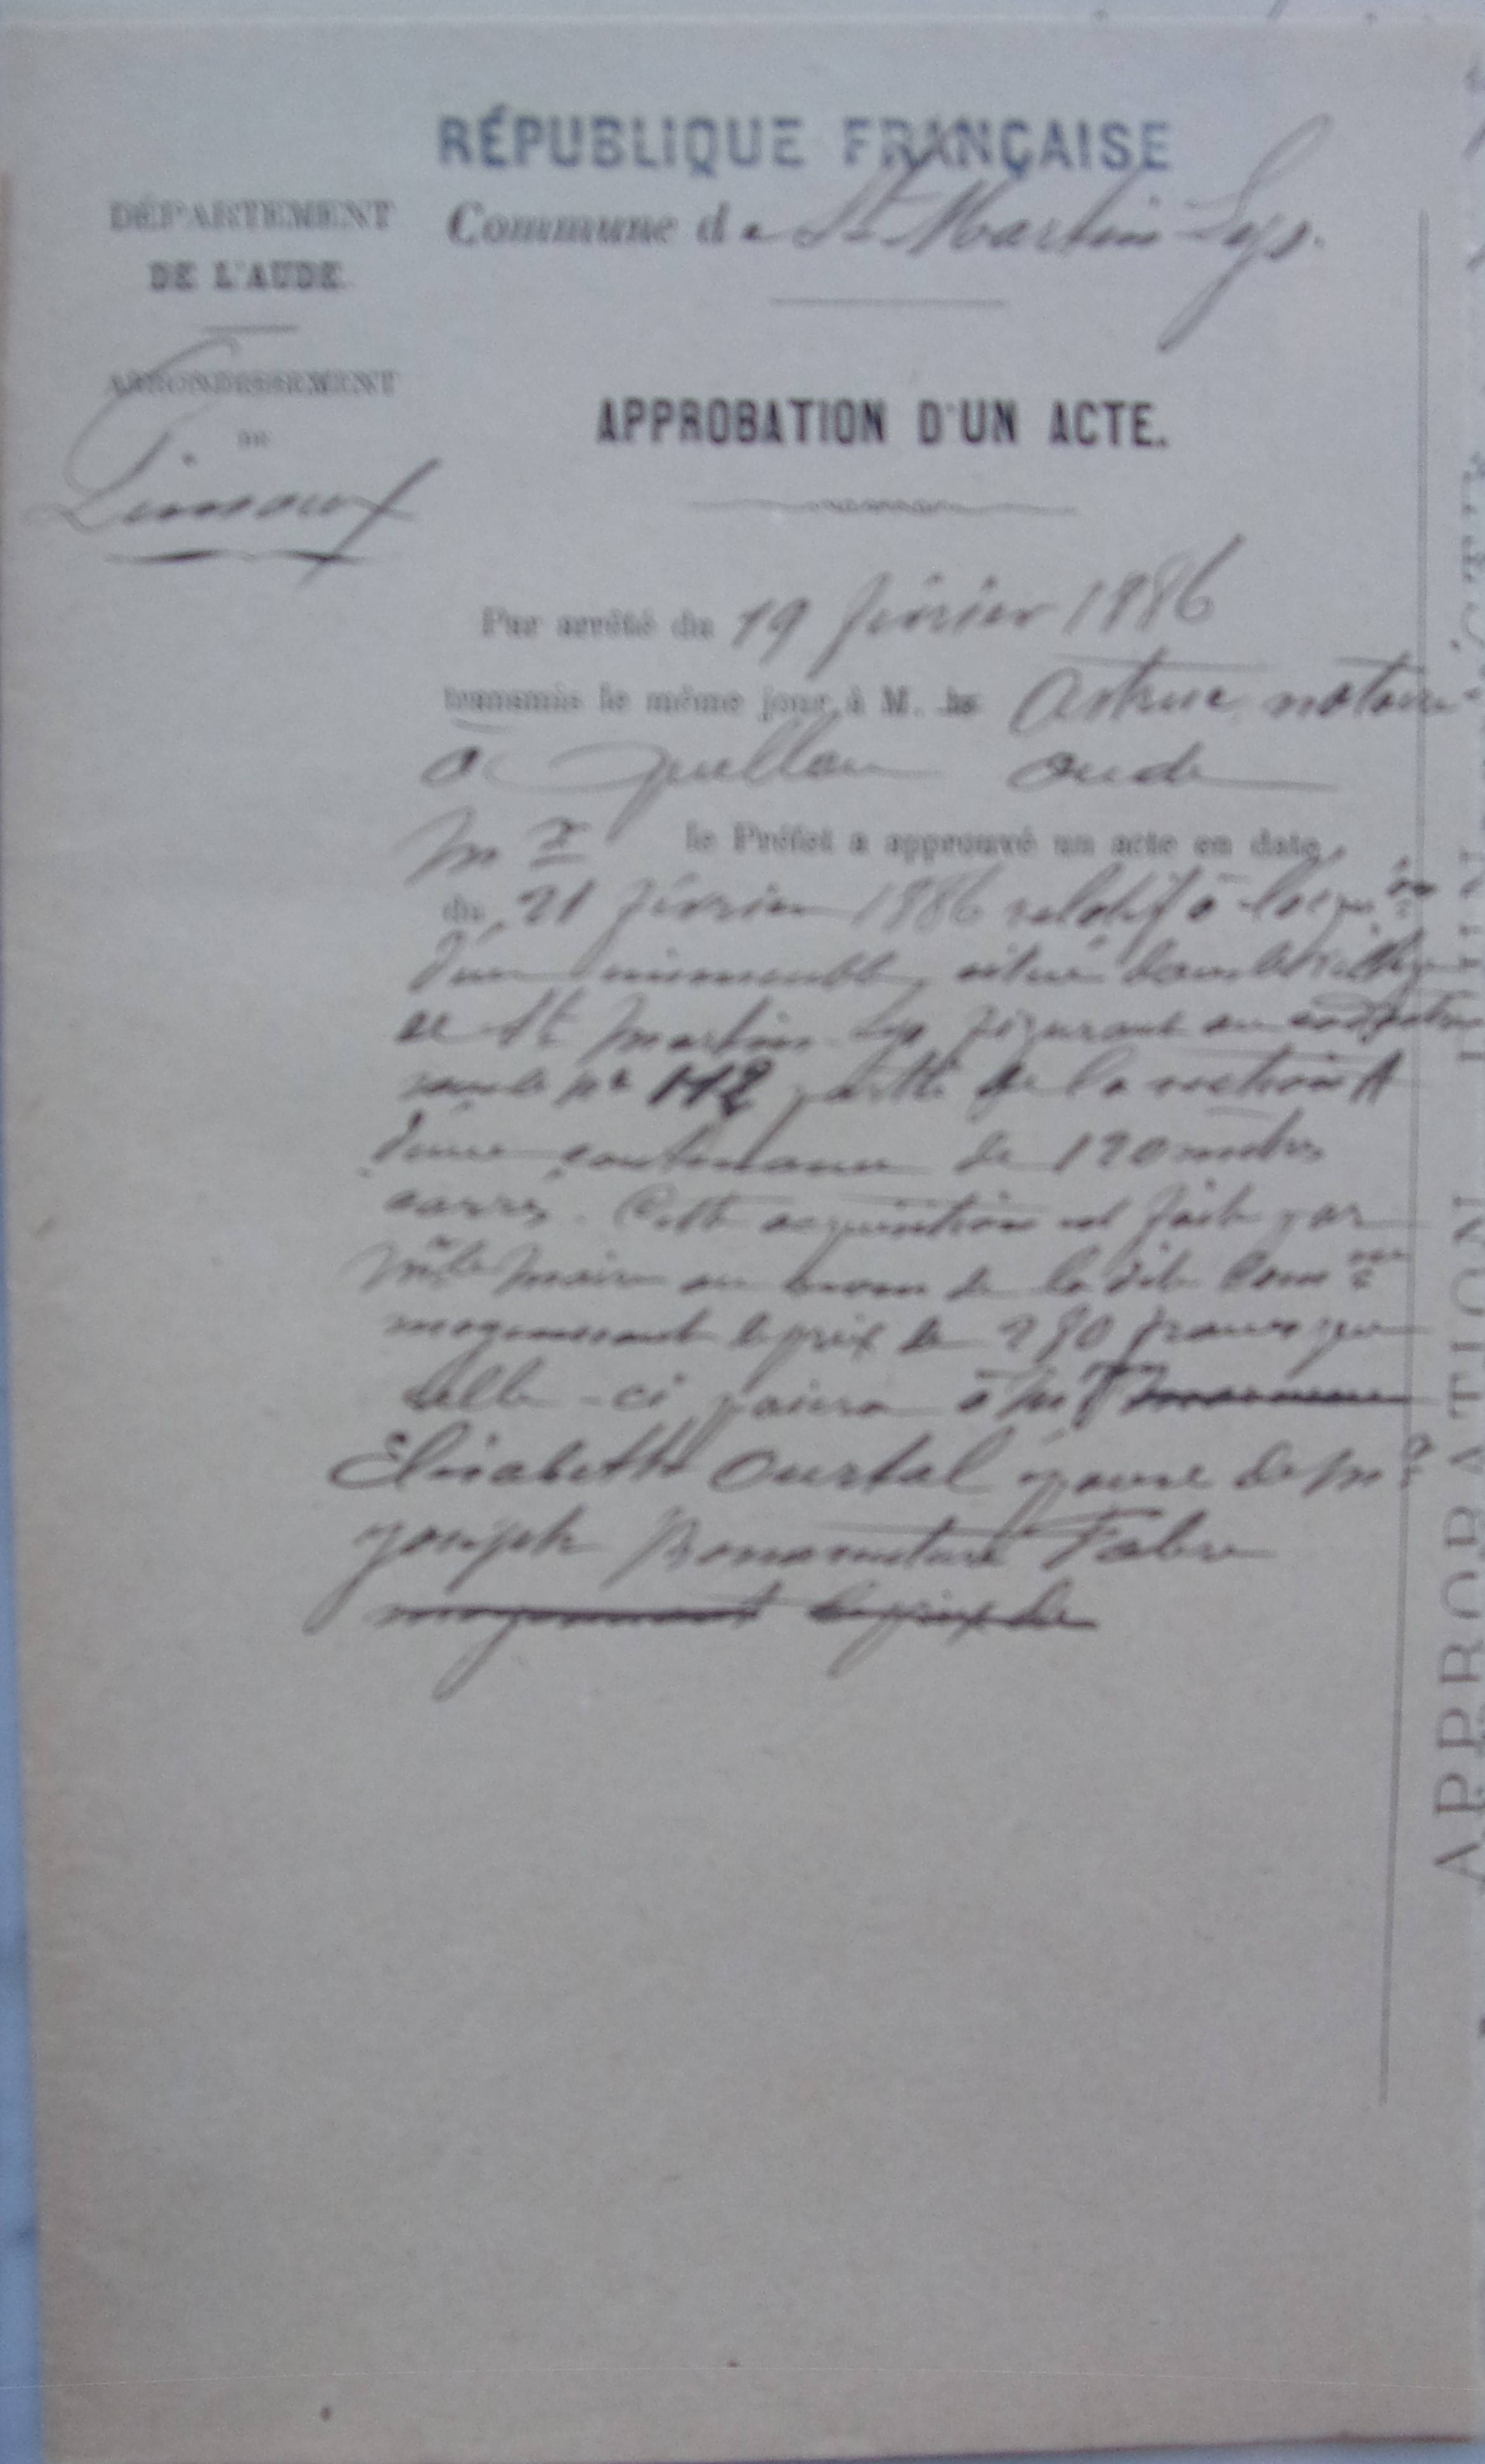 RÉPUBLIQUE FRANÇAISE
DÉPARTEMENT
DE L'AUDE.
Commune de St Martin-Lys.
ARRONDISSEMENT
DE
Limoux
APPROBATION D'UN ACTE.
Par arrêté du 19 février 1886
transmis le même jour à M. Astruc notaire
à Quillan Aude
Mr le Préfet a approuvé un acte en date
du 21 février 1886 relatif à l'acquon
d'un immeuble, situé dans le village
de St Martin-Lys figurant au cadastre
sous le no 112 partie de la section A
d'une contenance de 120 mètres
carrés. Cette acquisition est faite par
Mr le Maire au nom de la dite Comme
moyennant le prix de francs que
celle-ci paiera à
Elisabeth Ourtal épouse de Mr
Joseph Bonaventure Fabre
moyennant le prix de
APPROBATION D'UN ACTE